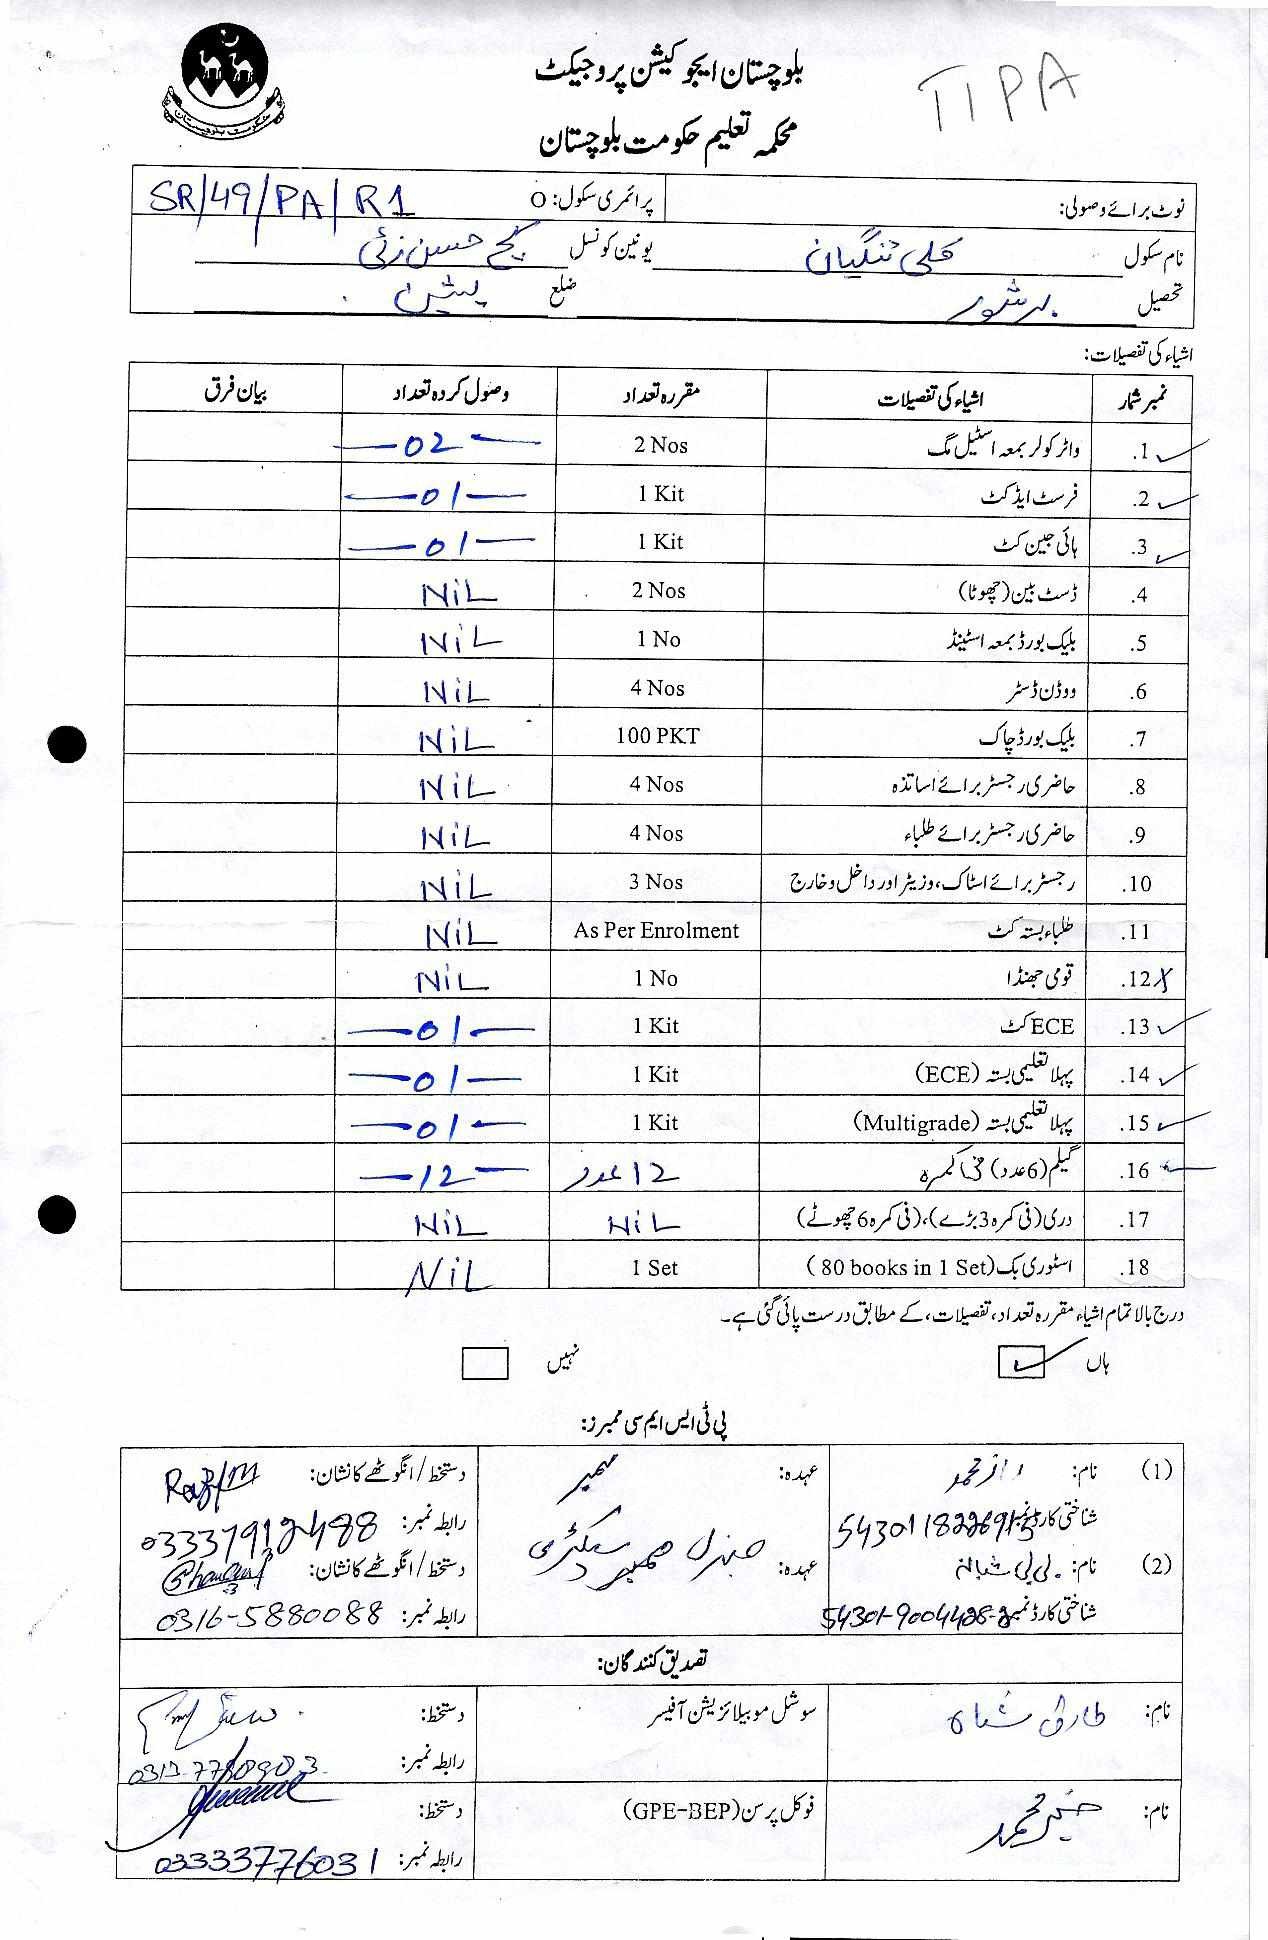 حکومت بلوچستان
بلوچستان ایجوکیشن پروجیکٹ
TIPA
محکمہ تعلیم حکومت بلوچستان
نوٹ برائے وصولی: پرائمری سکول: O SR/49/PA/R1
نام سکول کلی تنگیان یونین کونسل حسن زئی
تحصیل برشور ضلع پشین
اشیاء کی تفصیلات:
نمبر شمار اشیاء کی تفصیلات مقررہ تعداد وصول کردہ تعداد بیان فرق
1. واٹر کولر بمعہ اسٹیل مگ 2 Nos 02
2. فرسٹ ایڈ کٹ 1 Kit 01
3. ہائی جین کٹ 1 Kit 01
4. ڈسٹ بین (چھوٹا) 2 Nos NiL
5. بلیک بورڈ بمعہ اسٹینڈ 1 No NiL
6. ووڈن ڈسٹر 4 Nos NiL
7. بلیک بورڈ چاک 100 PKT NiL
8. حاضری رجسٹر برائے اساتذہ 4 Nos NiL
9. حاضری رجسٹر برائے طلباء 4 Nos NiL
10. رجسٹر برائے اسٹاک، وزیٹر اور داخل و خارج 3 Nos NiL
11. طلباء بستہ کٹ As Per Enrolment NiL
12. قومی جھنڈا 1 No NiL
13. ECE کٹ 1 Kit 01
14. پہلا تعلیمی بستہ (ECE) 1 Kit 01
15. پہلا تعلیمی بستہ (Multigrade) 1 Kit 01
16. گیلم (6 عدد) فی کمرہ 12 عدد 12
17. دری (فی کمرہ 3 بڑے)، (فی کمرہ 6 چھوٹے) NiL NiL
18. اسٹوری بک (80 books in 1 Set) 1 Set NiL
درج بالا تمام اشیاء مقررہ تعداد، تفصیلات، کے مطابق درست پائی گئی ہے۔
ہاں نہیں
پی ٹی ایس ایم سی ممبرز:
(1) نام: راز محمد عہدہ: ممبر دستخط/انگوٹھے کا نشان: Raz/M
شناختی کارڈ نمبر رابطہ نمبر: 03337912488
(2) نام: بی بی شبانہ عہدہ: جنرل ممبر سیکٹری دستخط/انگوٹھے کا نشان:
شناختی کارڈ نمبر 54301-9004428-2 رابطہ نمبر: 0316-5880088
تصدیق کنندگان:
نام: طارق شاہ سوشل موبیلائزیشن آفیسر دستخط:
رابطہ نمبر:
نام: محمد فوکل پرسن (GPE-BEP) دستخط:
رابطہ نمبر: 03333776031